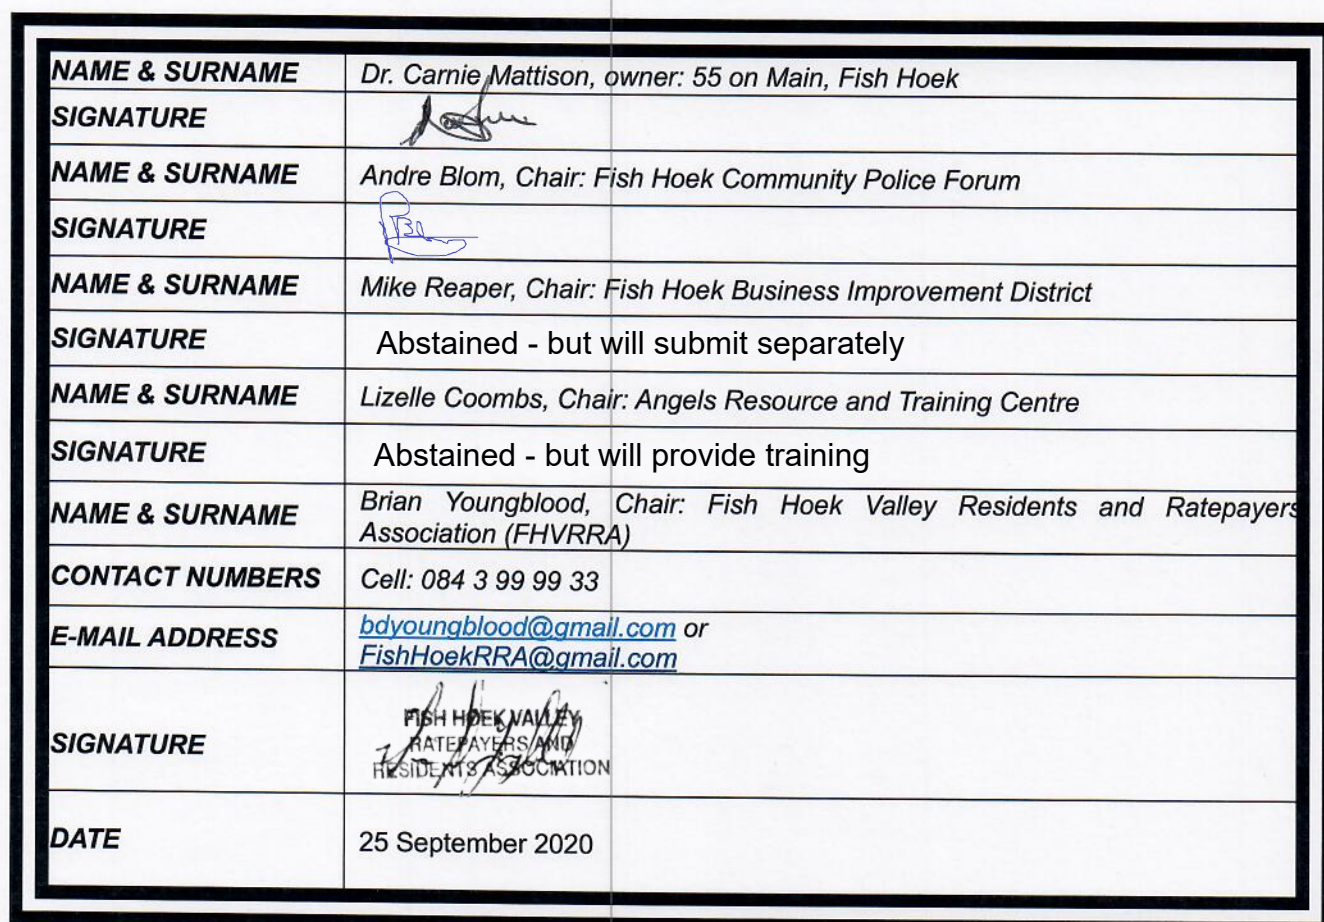 NAME & SURNAME Dr. Carnie Mattison, owner: 55 on Main, Fish Hoek
SIGNATURE
NAME & SURNAME Andre Blom, Chair: Fish Hoek Community Police Forum
SIGNATURE
NAME & SURNAME Mike Reaper, Chair: Fish Hoek Business Improvement District
SIGNATURE Abstained - but will submit separately
NAME & SURNAME Lizelle Coombs, Chair: Angels Resource and Training Centre
SIGNATURE Abstained - but will provide training
NAME & SURNAME Brian Youngblood, Chair: Fish Hoek Valley Residents and Ratepayers
Association (FHVRRA)
CONTACT NUMBERS Cell: 084 3 99 99 33
E-MAIL ADDRESS bdyoungblood@gmail.com or
FishHoekRRA@gmail.com
SIGNATURE FISH HOEK VALLEY
RATEPAYERS AND
RESIDENTS ASSOCIATION
DATE 25 September 2020